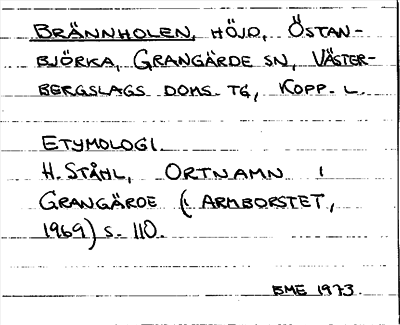 BRÄNNHOLEN, HÖJD, ÖSTAN-
BJÖRKA, GRANGÄRDE SN, VÄSTER-
BERGSLAGS DOMS. TG, KOPP. L.
ETYMOLOGI
H. STÅHL, ORTNAMN I
GRANGÄRDE (I ARMBORSTET,
1969) S. 110.
BME 1973.